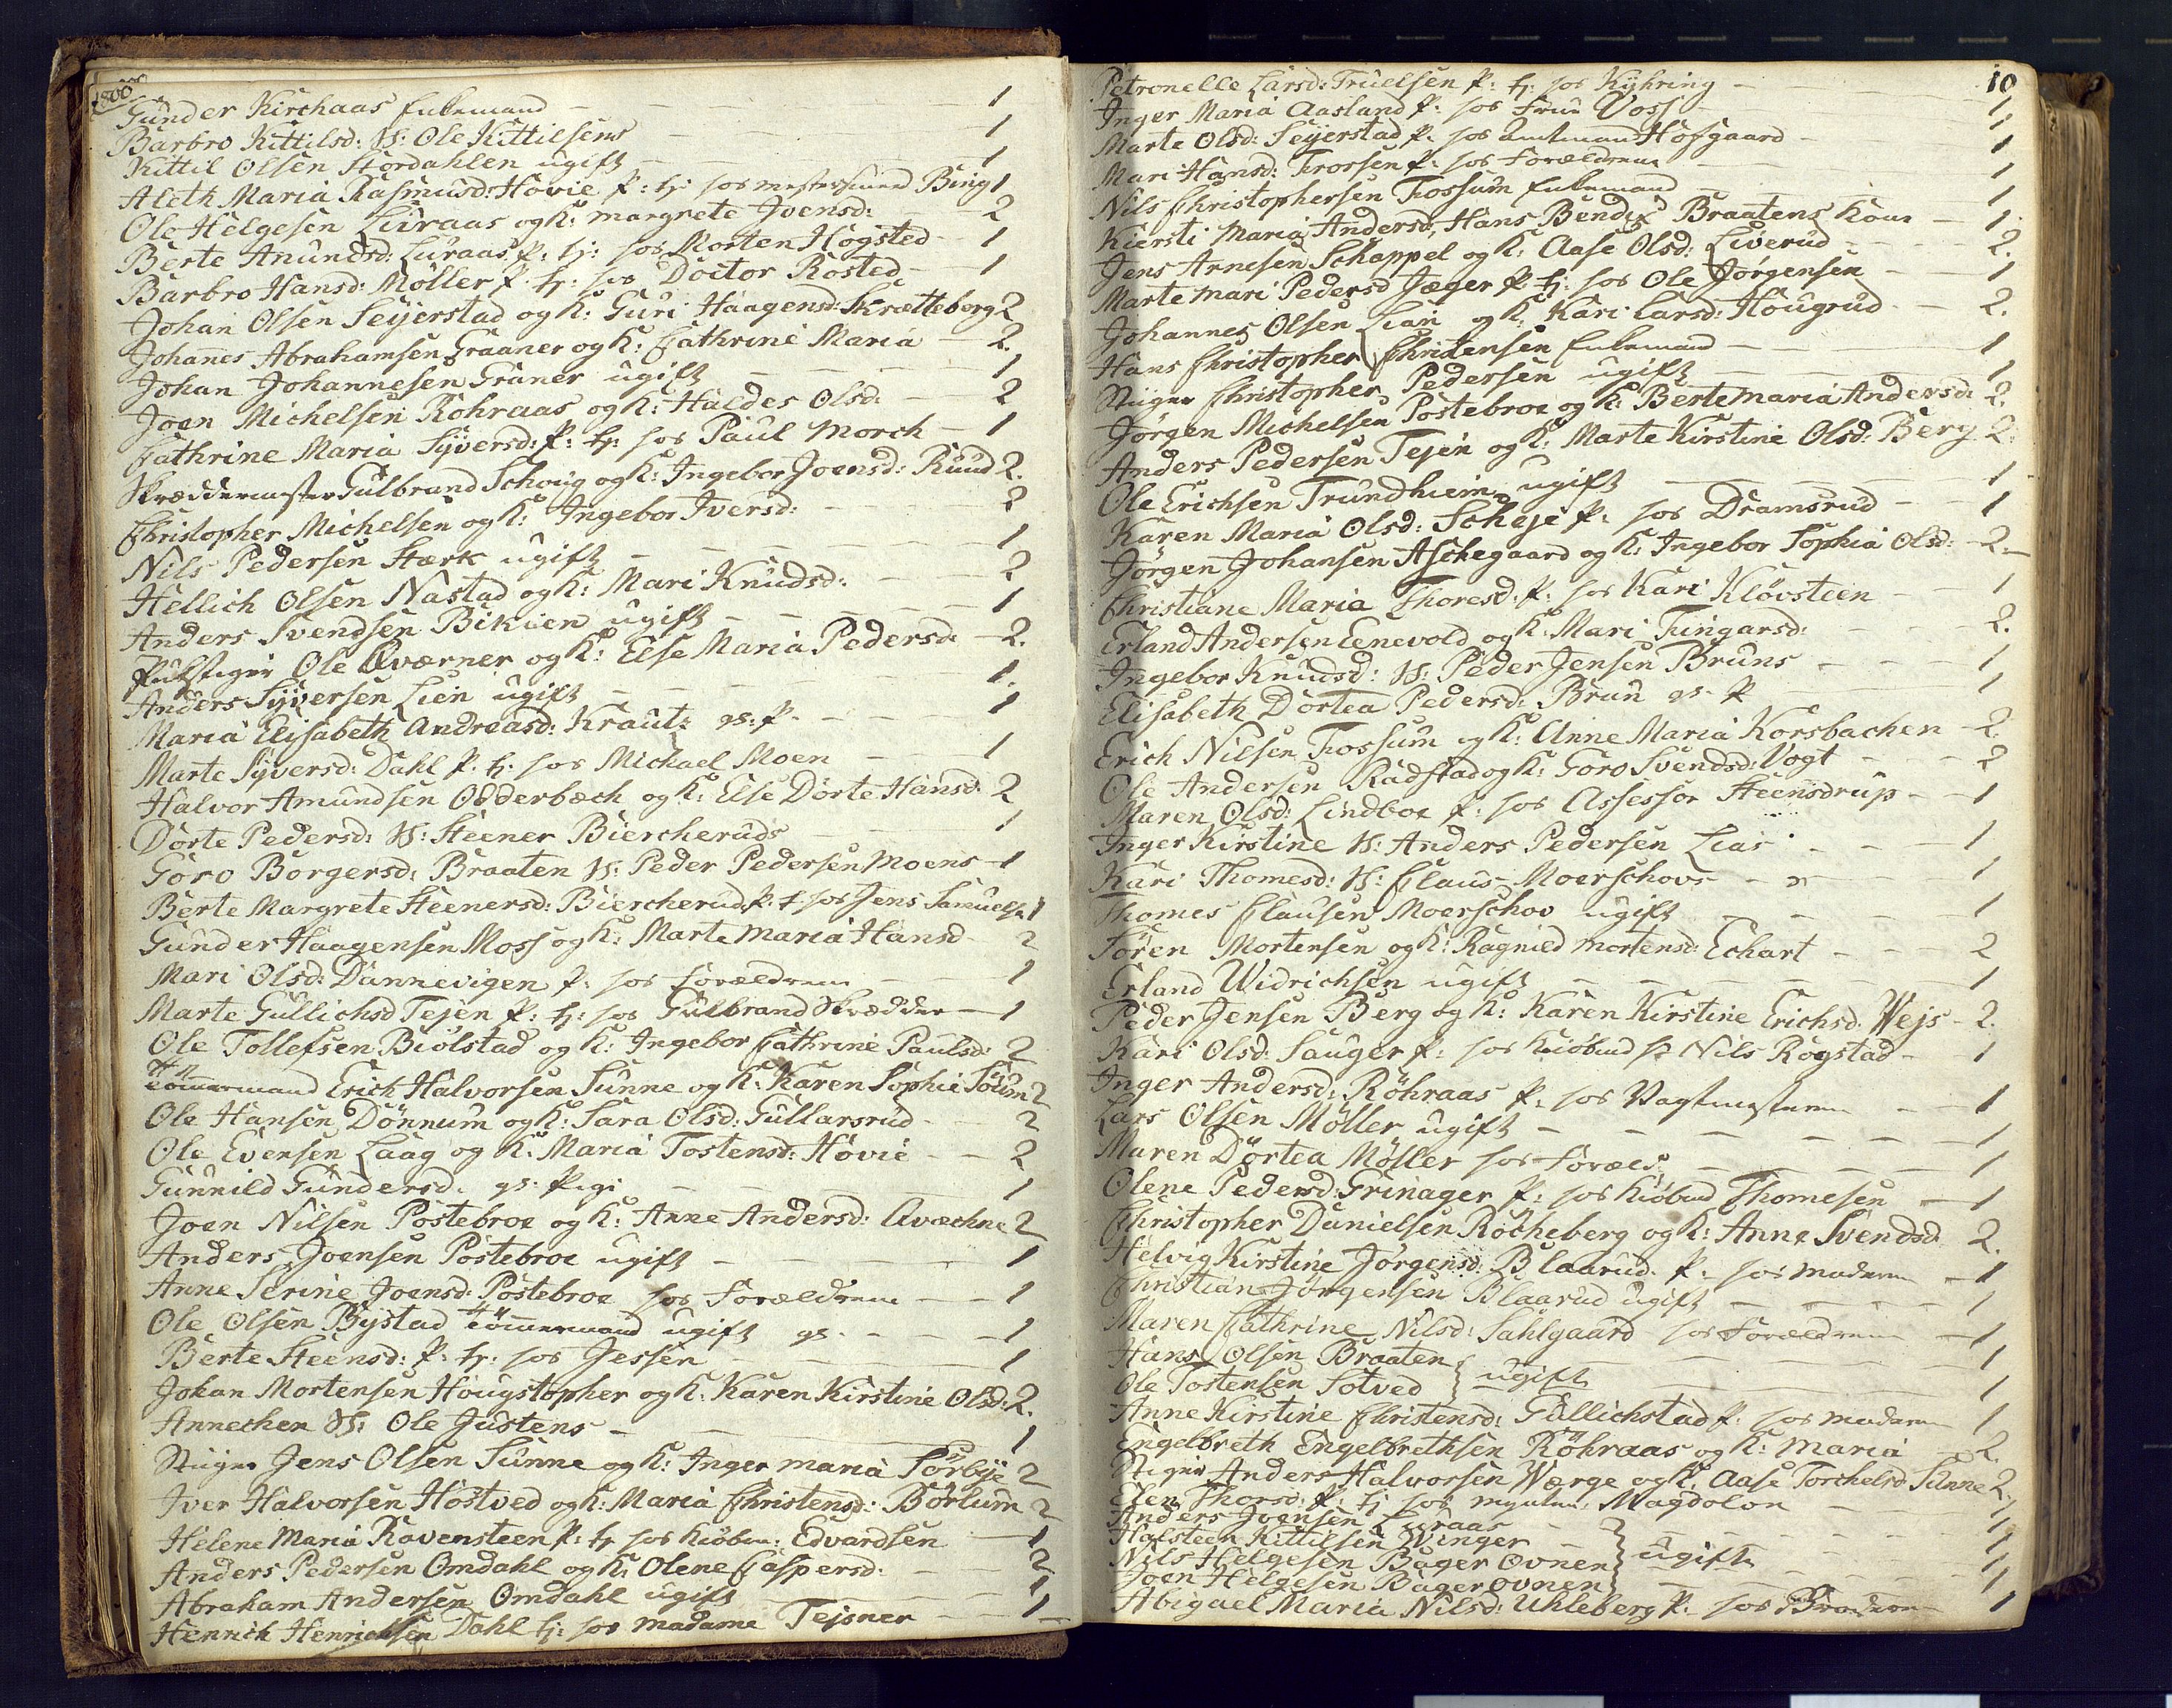 1800
Gunder Kirchaas Enkemand — 1
Barbro Kittilsd: W: Ole Kittilsens — 1
Kittil Olsen Stordahlen ugift — 1
Aleth Maria Rasmusd: Hovie P: tj: hos mestersmed Bing 1
Ole Helgesen Luraas og K: margrete Joensd: — 2
Berte Anundsd: Luraas P: tj: hos Morten Hogsted — 1
Barbro Hansd: Møller P: tj: hos Doctor Rosted — 1
Johan Olsen Seijerstad og K: Guri Haagensd: Skrætteberg 2
Johannes Abrahamsen Graaner og K: Cathrine Maria — 2.
Johan Johannesen Graner ugift — 1
Joen Michelsen Röhraas og K: Haldes Olsd: — 2
Cathrine Maria Syversd: P: tj: hos Paul Morch — 1
Skræddermester Gulbrand Schoug og K: Ingebor Joensd: Ruud 2.
Christopher Michelsen og K: Ingebor Iversd: — 2
Nils Pedersen Stærk ugift — 1
Hellich Olsen Nastad og K: Mari Knudsd: — 2
Anders Svendsen Bikuen ugift — 1
Pukstiger Ole Qværner og K: Else Maria Pedersd: — 2.
Anders Syversen Lien ugift — 1.
Maria Elisabeth Andreasd: Krautz gs: P. — 1
Marte Syversd: Dahl P. tj. hos Michael Moen — 1
Halvor Amundsen Odderbæch og K: Else Dorte Hansd: 2
Dorte Pedersd: W: Steener Biercheruds — 1
Goro Borgersd: Braaten W: Peder Pedersen Moens — 1
Berte Margrete Steenersd: Biercherud P: t hos Jens Samuels: 1
Gunder Haagensen Moss og K: Marte maria Hansd — 2
Mari Olsd: Dannevigen P: hos Forældrene — 1
Marte Gullichsd Tejen P: tj: hos Gulbrand Skrædder — 1
Ole Tollefsen Biölstad og K: Ingebor Cathrine Paulsd: 2
Tömmermand Erich Halvorsen Sunne og K: Karen Sophie Solum 2
Ole Hansen Dönnum og K: Sara Olsd: Gullarsrud — 2
Ole Evensen Laag og K: Maria Tostensd: Hovie — 2
Gunnild Gundersd: gs. P. gi — 1
Joen Nilsen Postebroe og K: Anne Andersd: Qvæchne 2
Anders Joensen Postebroe ugift — 1
Anne Serine Joensd: Postebroe hos Forældrene — 1
Ole Olsen Bystad Tömmermand ugift gs. — 1
Berte Steensd: P: tj: hos Jessen — 1
Johan Mortensen Hougstopher og K: Karen Kirstine Olsd: 2.
Annechen W: Ole Justens — 1
Stiger Jens Olsen Sunne og K: Inger maria Sörbye 2
Iver Halvorsen Hostved og K: Maria Christensd: Borlum 2
Helene Maria Ravensteen P: tj hos Kiöbm: Edvardsen — 1
Anders Pedersen Omdahl og K: Olene Caspersd: — 2
Abraham Andersen Omdahl ugift — 1
Henrich Henrichsen Dahl tj: hos madame Tejsner — 1
10
Petronelle Larsd: Truelsen P: tj: hos Kyhring — 1
Inger Maria Aasland P: hos Frue Voss — 1
Marte Olsd: Seijerstad P. hos Amtmand Hofgaard — 1
Mari Hansd: Trorsen P: hos Forældrene — 1
Nils Christophersen Fossum Enkemand — 1
Kiersti Maria Andersd: Hans Bendix Braatens Kone — 1.
Jens Arnesen Schappel og K: Aase Olsd: Liverud — 2.
Marte Mari Pedersd Jæger P tj: hos Ole Jørgensen — 1
Johannes Olsen Lian og K: Kari Larsd: Hougrud — 2.
Hans Christopher Christensen Enkemand — 1
Stiger Christopher Pedersen ugift — 1
Jørgen Michelsen Postebroe og K: Berte maria Andersd: 2.
Anders Pedersen Tejen og K: Marte Kirstine Olsd: Berg 2.
Ole Erichsen Trundhiem ugift — 1
Karen Maria Olsd: Scheje P: hos Dramsrud — 1
Jörgen Johansen Aschegaard og K: Ingebor Sophia Olsd: 2.
Christiane Maria Thoresd: P: hos Kari Klövsteen — 1
Erland Andersen Eenevold og K: Mari Tungarsd: — 2.
Ingebor Knudsd: W: Peder Jensen Bruns — 1
Elisabeth Dortea Pedersd: Brun gs. P — 1
Erich Nilsen Fossum og K: Anne Maria Korsbachen — 2.
Ole Andersen Radstad og K: Goro Svendsd: Vogt — 2
Maren Olsd: Lindboe P: hos Assessor Steensdrup — 1
Inger Kirstine W: Anders Pedersen Lias — 1
Kari Thomesd: W: Claus Moerschovs — 1
Thomes Clausen Moerschov ugift — 1
Sören Mortensen og K: Ragnild mortensd: Echart — 2
Erland Widrichsen ugift — 1
Peder Jensen Berg og K: Karen Kirstine Erichsd: Wejs 2.
Kari Olsd: Sauger P: hos Kiöbmd Sr Nils Rogstad — 1
Inger Andersd: Röhraas P: hos Vagtmesteren — 1
Lars Olsen Møller ugift — 1
Maren Dörtea Møller hos Foræld: — 1
Olene Pedersd: Grinager P: hos Kiöbmd Thomesen — 1
Christopher Danielsen Rocheberg og K: Anne Svendsd 2.
Helvig Kirstine Jørgensd: Blaarud P. hos moderen — 1
Christian Jörgensen Blaarud ugift — 1
Maren Cathrine Nilsd: Sahlgaard hos Forældrene — 1
Hans Olsen Braaten — 1
Ole Tostensen Sotved } ugift — 1
Anne Kirstine Christensd: Gullichstad P: hos moderen 1
Engelbreth Engelbrethsen Röhraas og K: maria — 2.
Stiger Anders Halvorsen Werge og K: Aase Torchelsd Sunne 2.
Elen Thorsd: P: tj hos Magdolon — 1
Anders Joensen Luraas — 1
Halsteen Kittilsen Winger — 1
Nils Helgesen Bager Ovnen } ugift — 1
Joen Helgesen Bager ovnen — 1
Abigael Maria Nilsd: Uhleberg P. hos Broderen — 1